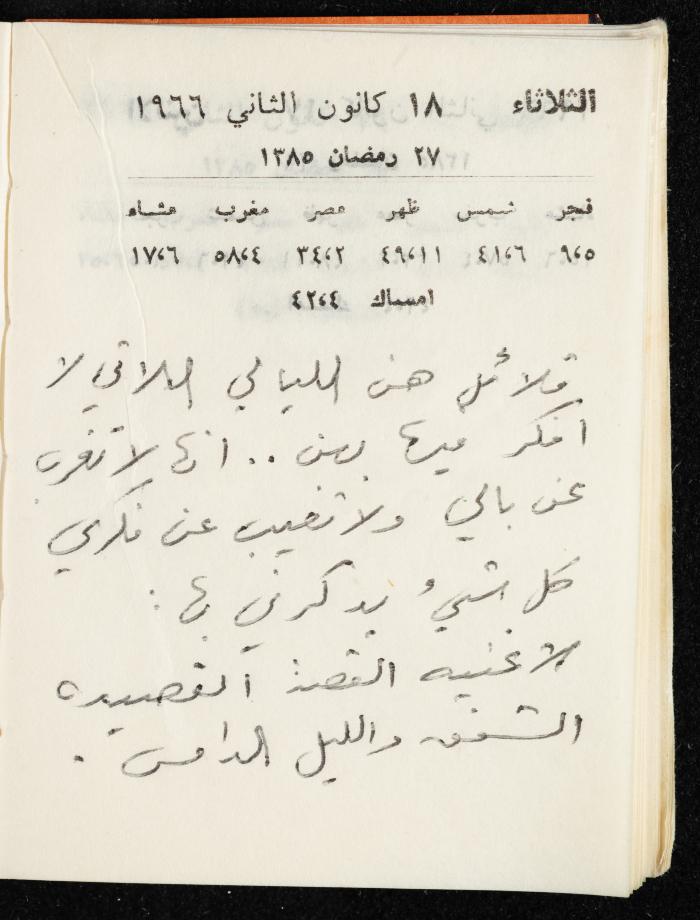 الثلاثاء ١٨ كانون الثاني ١٩٦٦
٢٧ رمضان ١٣٨٥
فجر شمس ظهر عصر مغرب عشاء
٩،٥ ٤١،٦ ٤٩،١١ ٣٤،٢ ٥٨،٤ ١٧،٦
امساك ٤٢،٤
قلائل هن الليالي اللاتي لا
افكر فيها بهن .. انها لا تغرب
عن بالي ولا تغيب عن فكري
كل شيء يذكرني بها :
الاغنيه القصة القصيده
الشفق والليل الدامس .